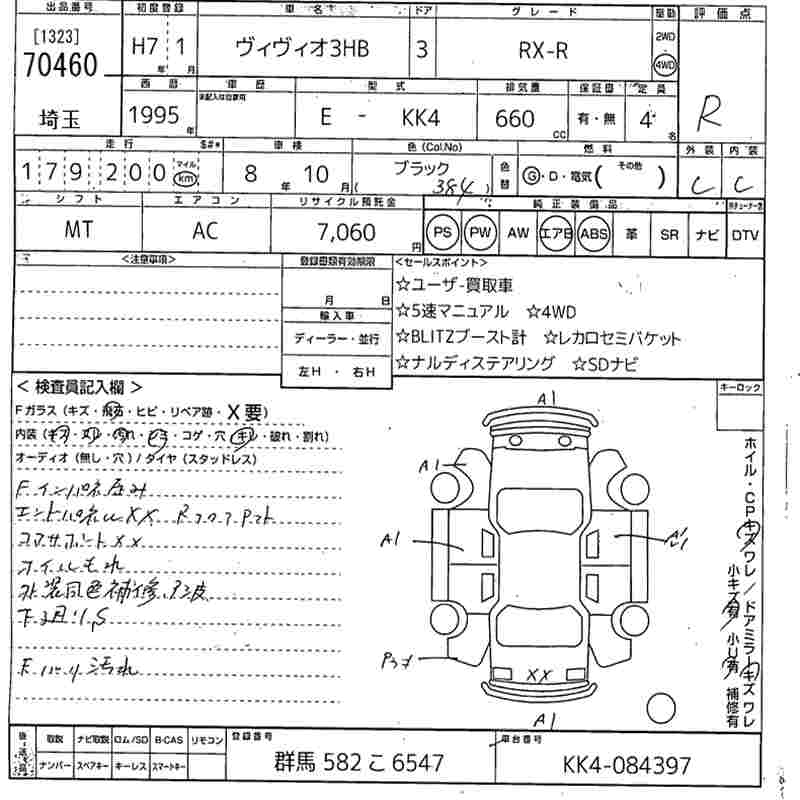 出品番号 初度登録 車名 ドア グレード 駆動 評価点
[1323]
70460
H7 1 ヴィヴィオ3HB 3 RX-R 2WD 4WD
年 月
西暦 車歴 型式 排気量 保証書 定員
未記入は自家用
埼玉 1995 年 E - KK4 660 cc 有・無 4 名 R
走行 $#* 車検 色(Col.No) 燃料 外装 内装
179200 マイル km 8 年 10 月 ブラック ( 384 ) 色替 G・D・電気( その他 ) C C
シフト エアコン リサイクル預託金 純正装備品
MT AC 7,060 円 PS PW AW エアB ABS 革 SR ナビ DTV
<注意事項> 登録書類有効期限 <セールスポイント>
月 日
輸入車
ディーラー・並行
左H ・ 右H
☆ユーザ-買取車
☆5速マニュアル ☆4WD
☆BLITZブースト計 ☆レカロセミバケット
☆ナルディステアリング ☆SDナビ
< 検査員記入欄 > キーロック
Fガラス(キズ・飛石・ヒビ・リペア跡・X要)
内装(キズ・スレ・汚れ・ビス・コゲ・穴・キレ・破れ・割れ)
オーディオ(無し・穴)/タイヤ(スタッドレス)
Fインパネ歪み
エンドパネルXX
コアサポートXX
オイルもれ
外装同色補修、夕波
下回りS
汚れ
A1
A1
A1
XX
A1
ホイル・CPキズワレ/ドアミラーキズワレ
小キズ有/小U有/補修有
後送品 取説 ナビ取説 ロム/SD B-CAS リモコン 登録番号 車台番号
ナンバー スペアキー キーレス スマートキー 群馬 582 こ 6547 KK4-084397